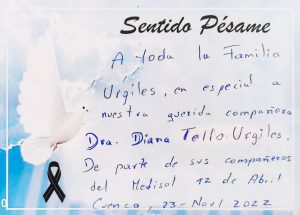 Sentido Pésame
A toda la Familia
Urgiles, en especial a
nuestra querida compañera
Dra. Diana Tello Urgiles.
De parte de sus compañeros
del Medisol 12 de Abril
Cuenca, 23-Nov/2022